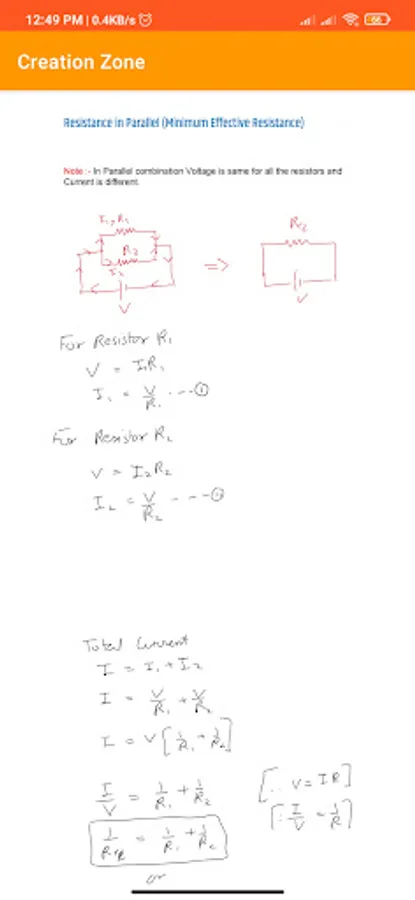 12:49 PM | 0.4KB/s
66
Creation Zone
Resistance in Parallel (Minimum Effective Resistance)
Note :- In Parallel combination Voltage is same for all the resistors and
Current is different.
I₁, R₁
R₂
I₂
V
=>
R₂
V
For Resistor R₁
V = I₁R₁
I₁ = V/R₁ ---①
For Resistor R₂
V = I₂R₂
I₂ = V/R₂ ---②
Total Current
I = I₁ + I₂
I = V/R₁ + V/R₂
I = V[1/R₁ + 1/R₂]
I/V = 1/R₁ + 1/R₂
[∵ V = IR]
[∵ I/V = 1/R]
= 1/R₁ + 1/R₂
or